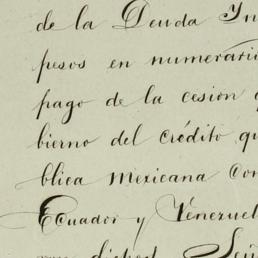 de la Deuda Yn
pesos en numerari
pago de la cesion
bierno del crédito, qu
blica Mexicana con
Ecuador y Venezuel
dichos Señ